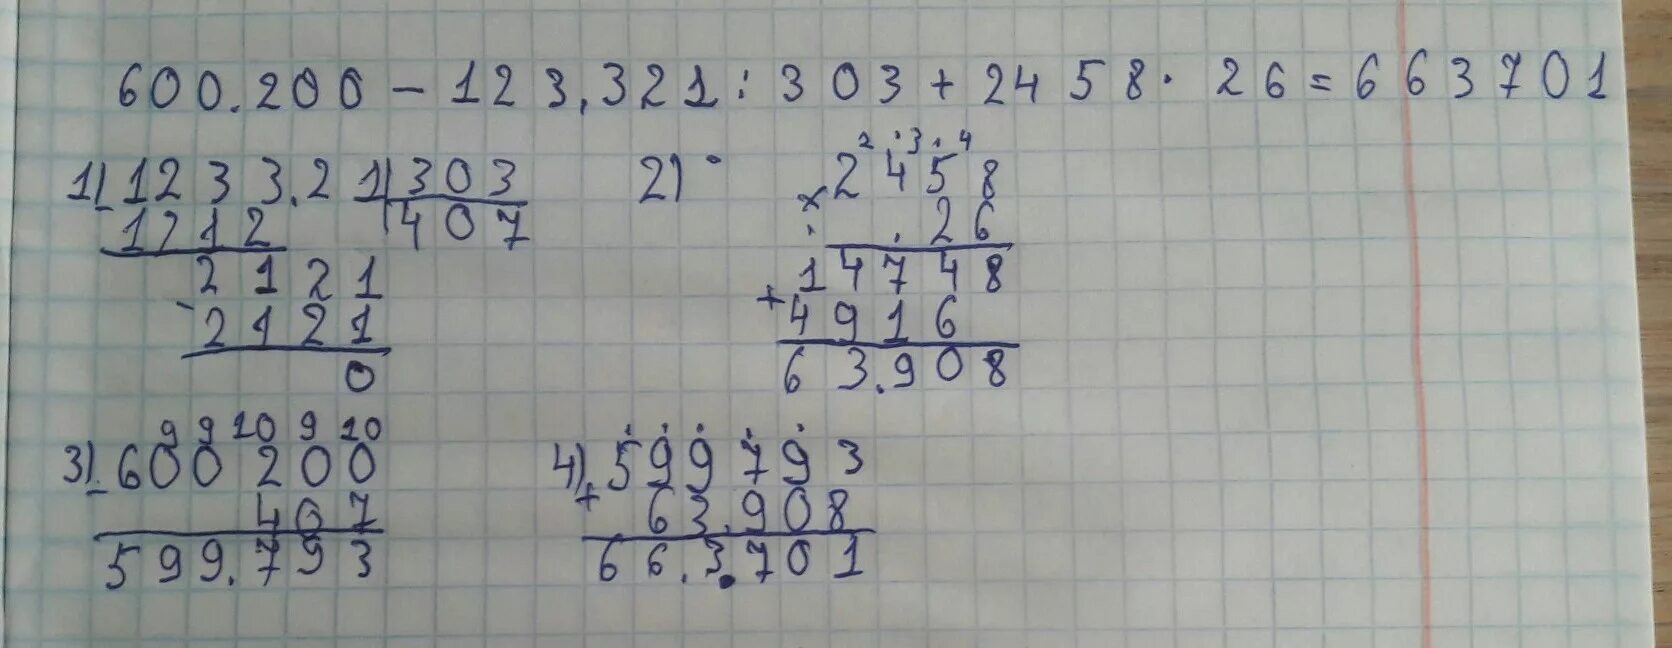 600.200 - 123.321 : 303 + 2458 · 26 = 663701
1) 1233.21 | 303
- 1212 | 407
2121
- 2121
0
2) 2458
× 26
14748
+ 4916
63.908
9 9 10 9 10
3) 600200
- 407
599.793
4) 599793
+ 63.908
66.3.701